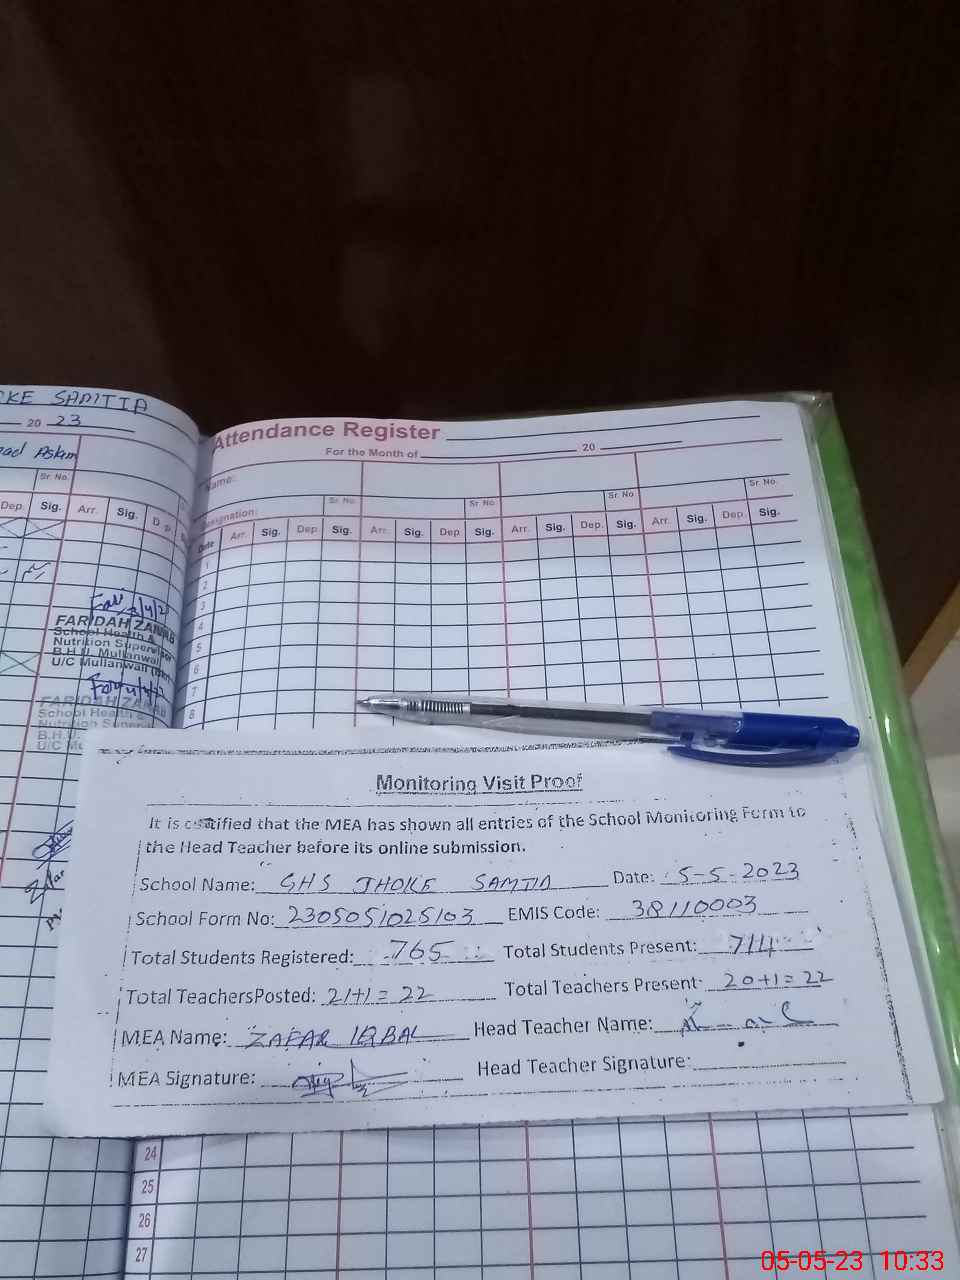 CKE SAMTIA
20 23
Aslam
Sr. No.
Dep. Sig. Arr. Sig.
FARIDAH ZAINAB
School Health &
Nutrition Supervisor
B.H.U. Mullanwali
U/C Mullanwali
FARIDAH ZAINAB
School Health &
Nutrition Supervisor
B.H.U.
U/C Mu
Attendance Register
For the Month of 20
Name:
Sr. No. Sr. No. Sr. No. Sr. No.
Designation:
Date Arr. Sig. Dep. Sig. Arr. Sig. Dep. Sig. Arr. Sig. Dep. Sig. Arr. Sig. Dep. Sig.
1
2
3
4
5
6
7
8
Monitoring Visit Proof
It is certified that the MEA has shown all entries of the School Monitoring Form to
the Head Teacher before its online submission.
School Name: GHS JHOKE SAMTIA Date: 5-5-2023
School Form No: 2305051025103 EMIS Code: 38110003
Total Students Registered: 765 Total Students Present: 714
Total TeachersPosted: 21+1=22 Total Teachers Present: 20+1=22
MEA Name: ZAFAR IQBAL Head Teacher Name:
MEA Signature: Head Teacher Signature:
24
25
26
27
05-05-23 10:33